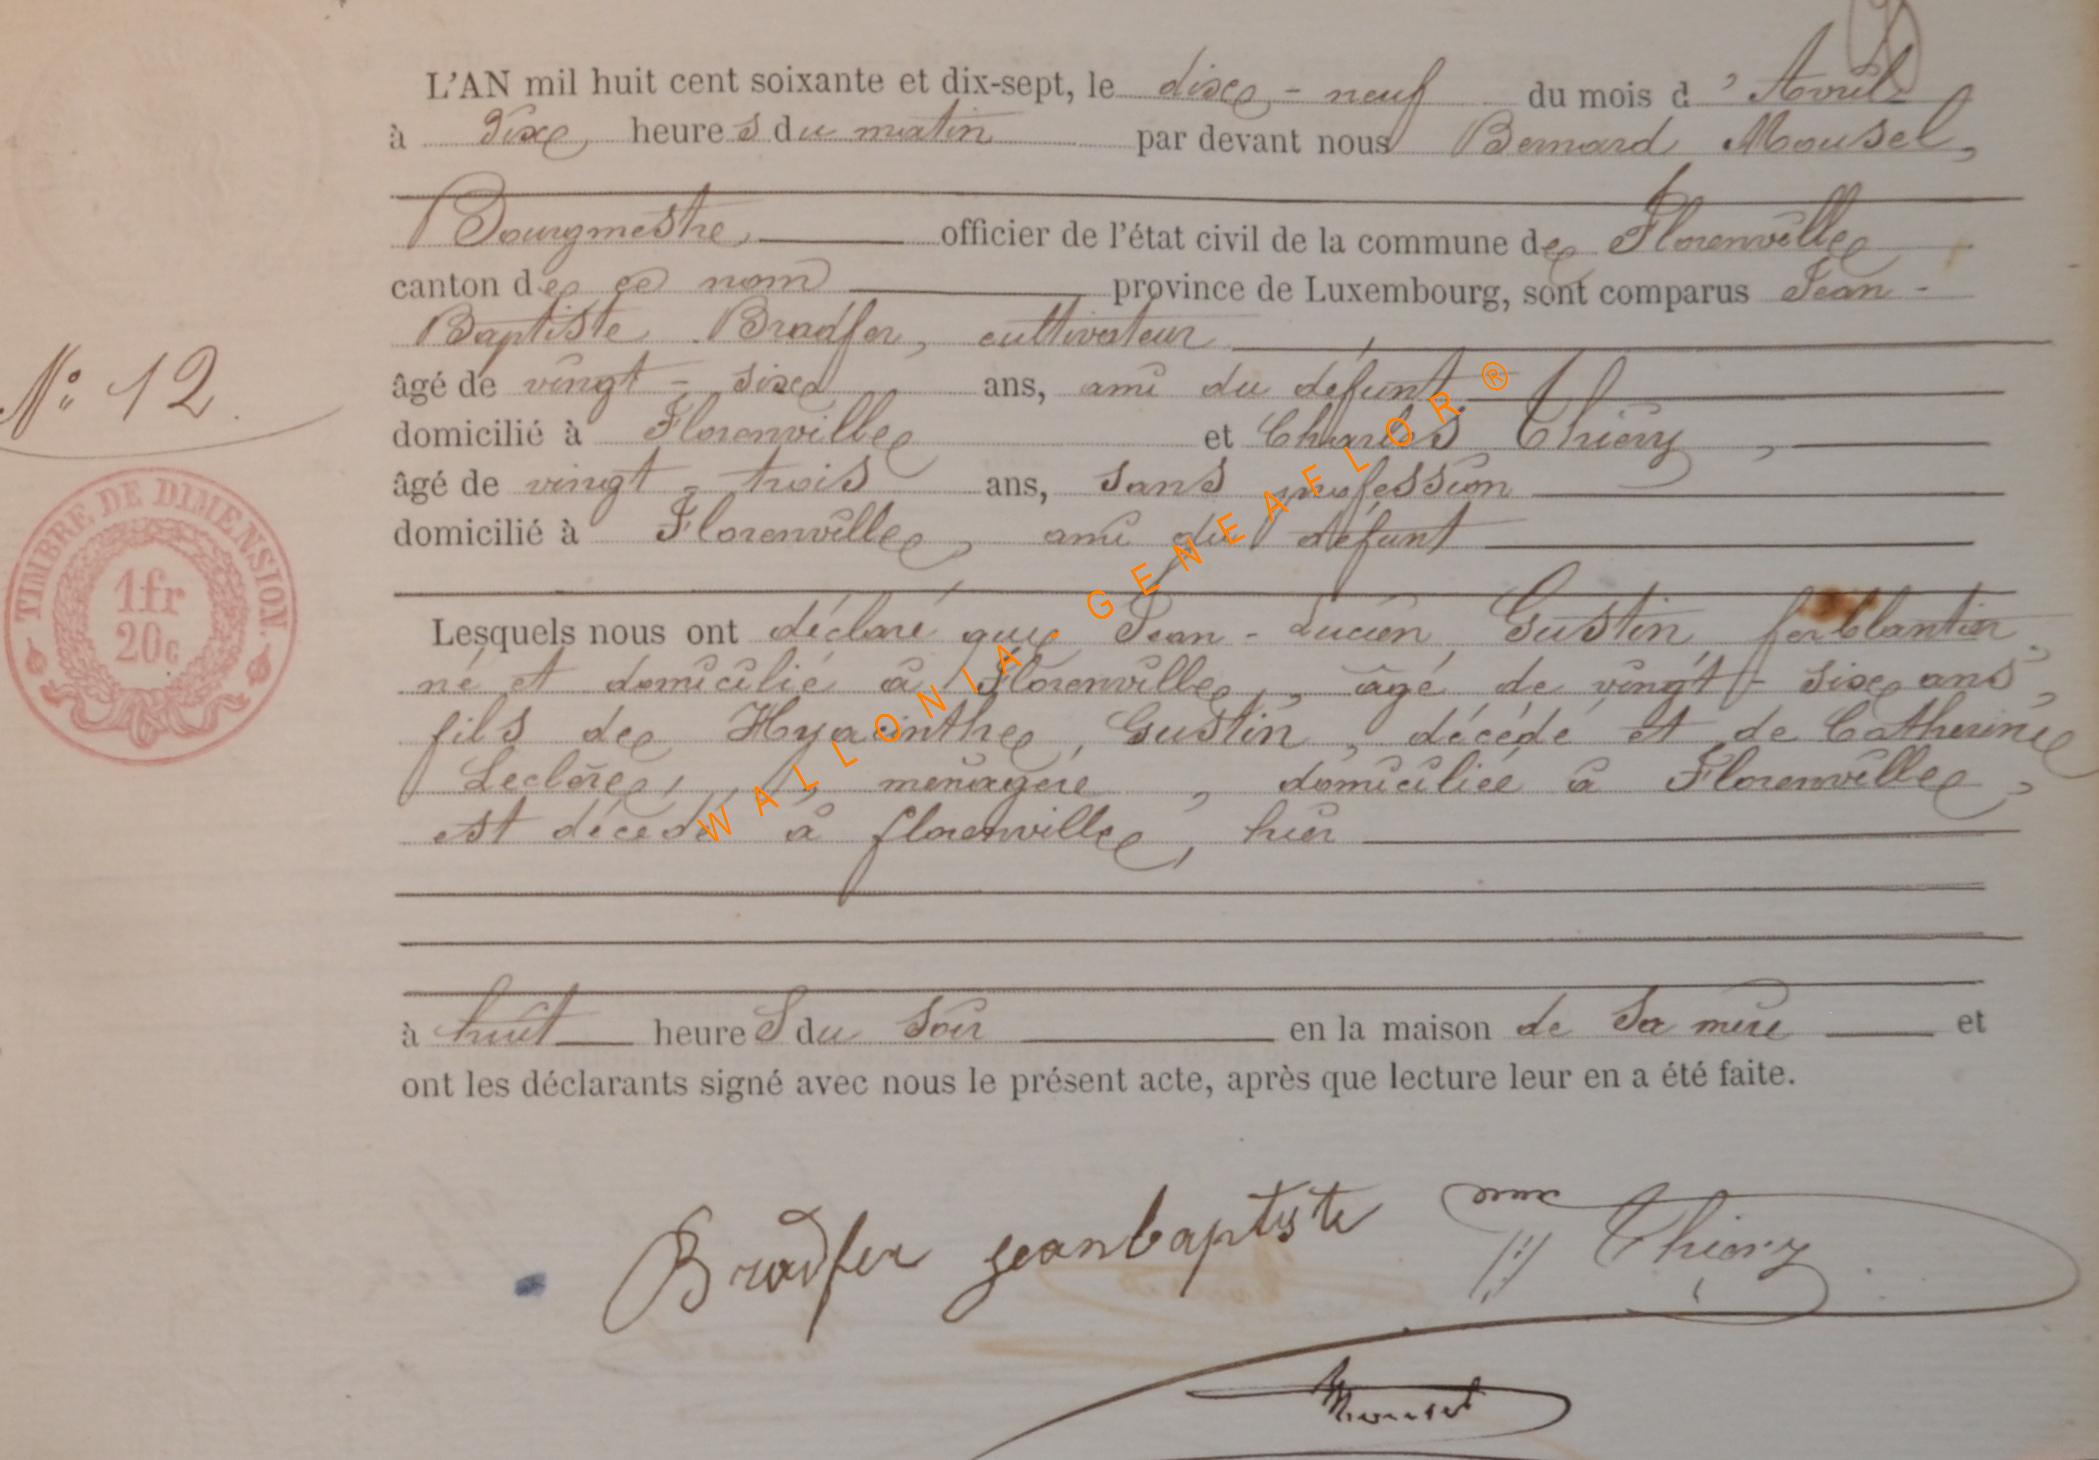 L'AN mil huit cent soixante et dix-sept, le dix-neuf du mois d'Avril
à dix heures du matin par devant nous Bernard Mousel,
Bourgmestre, officier de l'état civil de la commune de Florenville
canton de ce nom province de Luxembourg, sont comparus Jean-
Baptiste Bradfer, cultivateur
N° 12
âgé de vingt-six ans, ami du défunt
domicilié à Florenville et Charles Thiery,
âgé de vingt-trois ans, sans profession
domicilié à Florenville, ami du défunt
TIMBRE DE DIMENSION.
1fr
20c
Lesquels nous ont déclaré que Jean-Lucien Gustin, ferblantier,
né et domicilié à Florenville, âgé de vingt-six ans,
fils de Hyacinthe Gustin, décédé et de Catherine
Leclère, ménagère, domiciliée à Florenville,
est décédé à florenville, hier
à huit heures du soir en la maison de sa mère et
ont les déclarants signé avec nous le présent acte, après que lecture leur en a été faite.
Bradfer jeanbaptiste Thiery
Mousel
WALLONIA GENEAFLOR ®